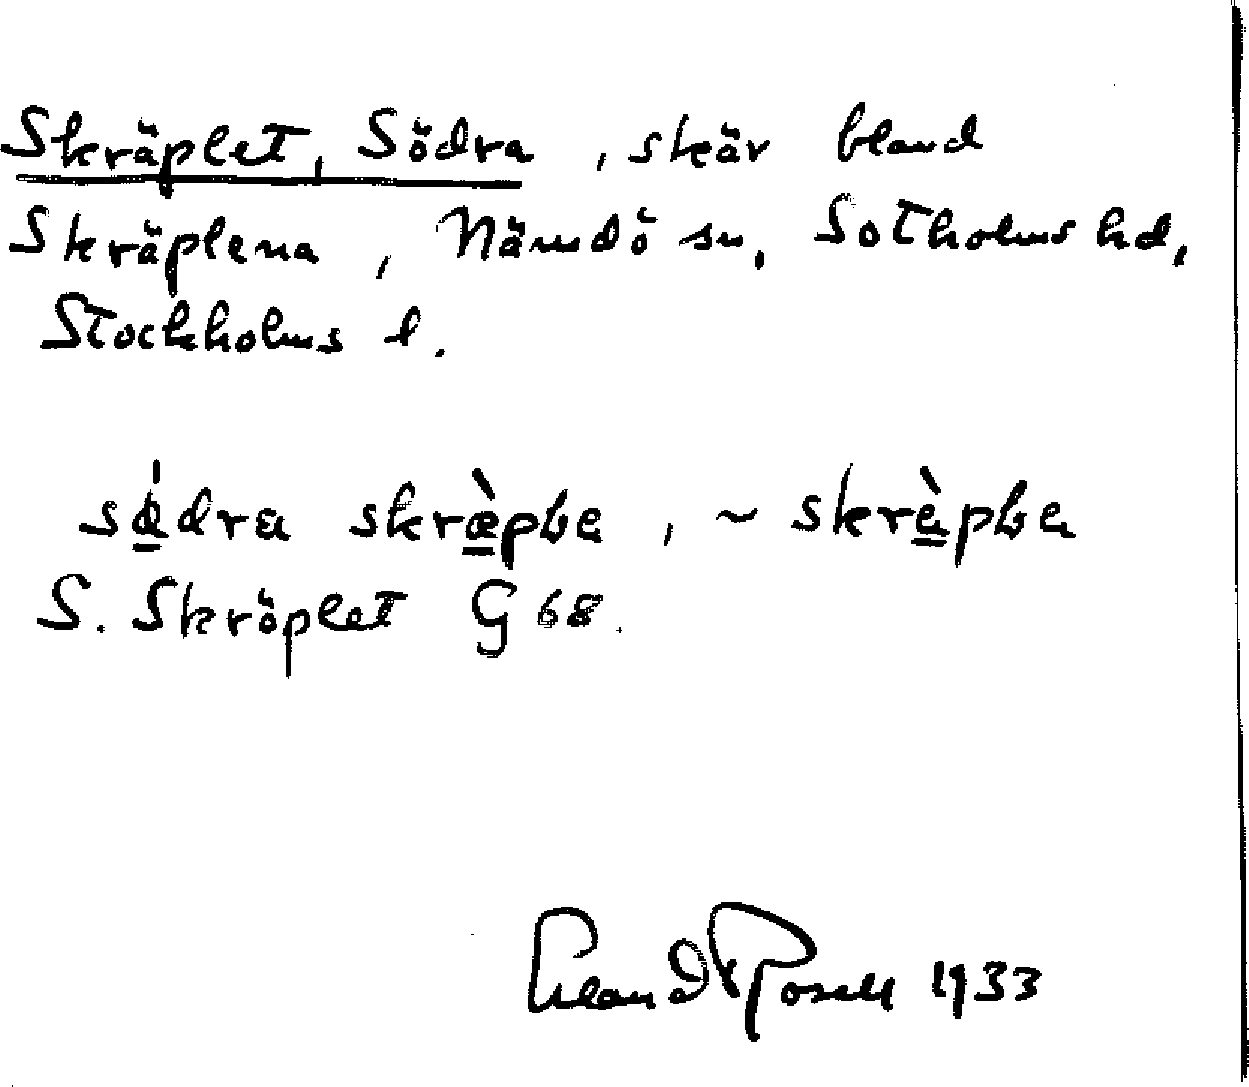 Skräplet, Södra, skär bland
Skräplena, Nämdö sn, Sotholms hd,
Stockholms l.
södra skræ̀pɫa, ~ skrèpɫa
S. Skröplet G 68.
Erland Rosell 1933